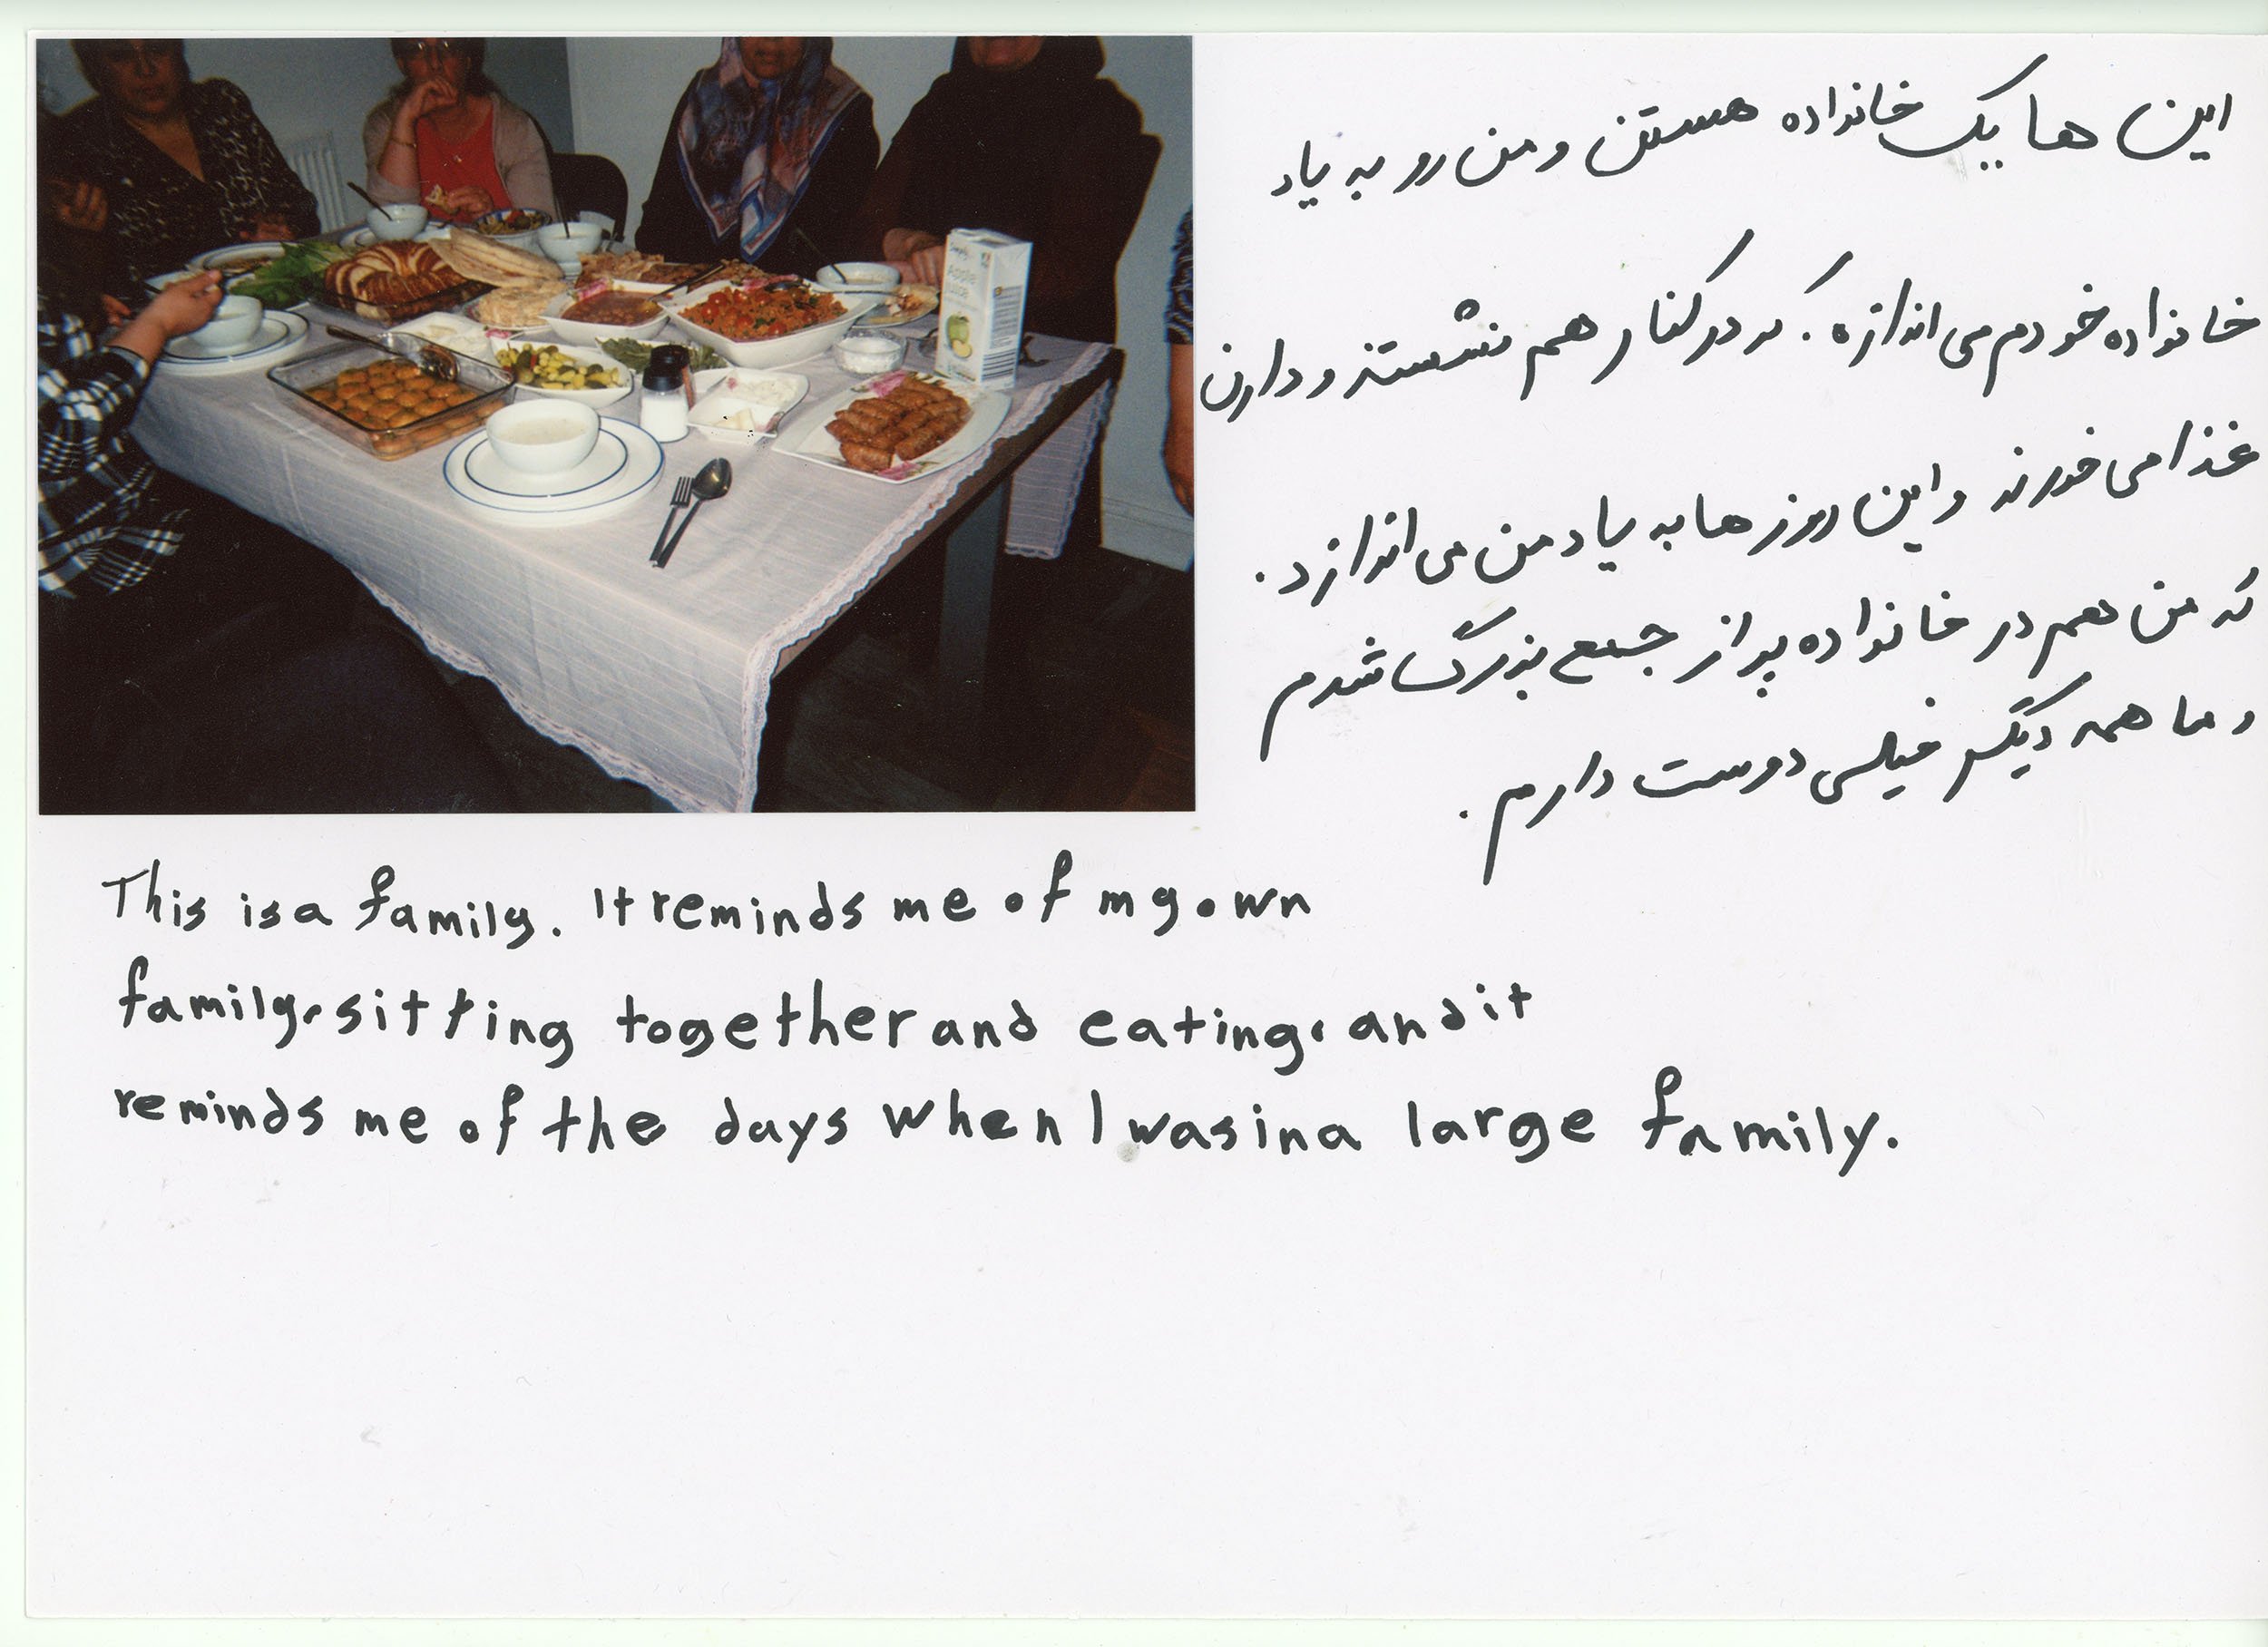 این ها یک خانواده هستن و من رو به یاد
خانواده خودم می اندازه. که در کنار هم نشستند و دارن
غذا می خورند و این روز ها به یاد من می اندازد.
که من هم در خانواده پر از جمع بزرگ شدم
و ما همه دیگر خیلی دوست دارم.
Apple
This is a family. It reminds me of my own
family, sitting together and eating, and it
reminds me of the days when I was in a large family.